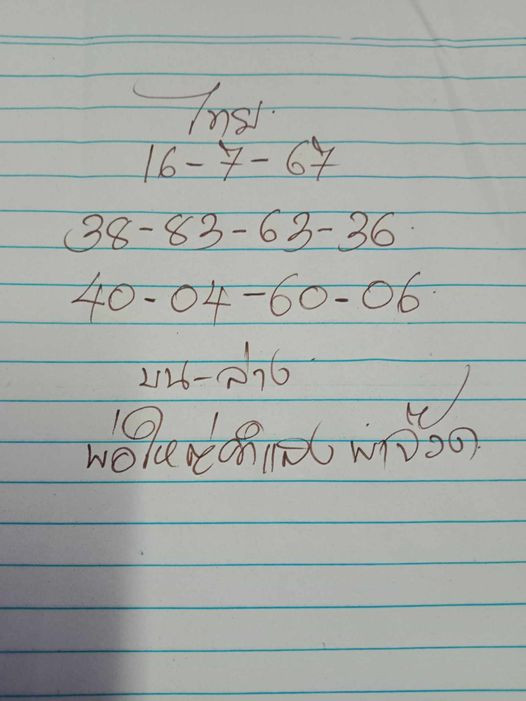 ไทย
16-7-67
38-83-63-36
40-04-60-06
บน-ล่าง
พ่อใหญ่คำแสง พาจ๊วด